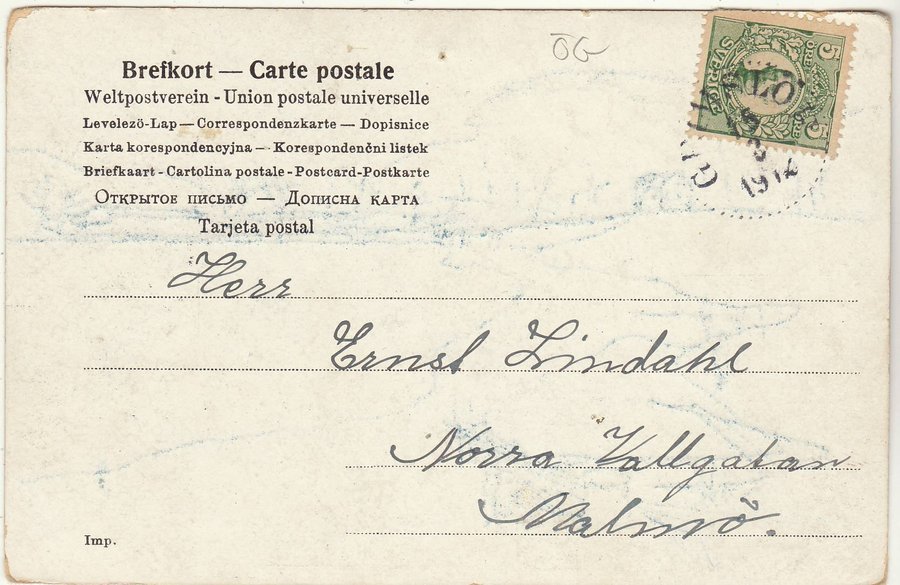 ÖG
Brefkort — Carte postale
Weltpostverein - Union postale universelle
Levelezö-Lap — Correspondenzkarte — Dopisnice
Karta korespondencyjna — Korespondenční listek
Briefkaart - Cartolina postale - Postcard-Postkarte
Открытое письмо — Дописна карта
Tarjeta postal
5 ÖRE 5
SVERIGE
1912
Herr
Ernst Lindahl
Norra Vallgatan
Malmö.
Imp.